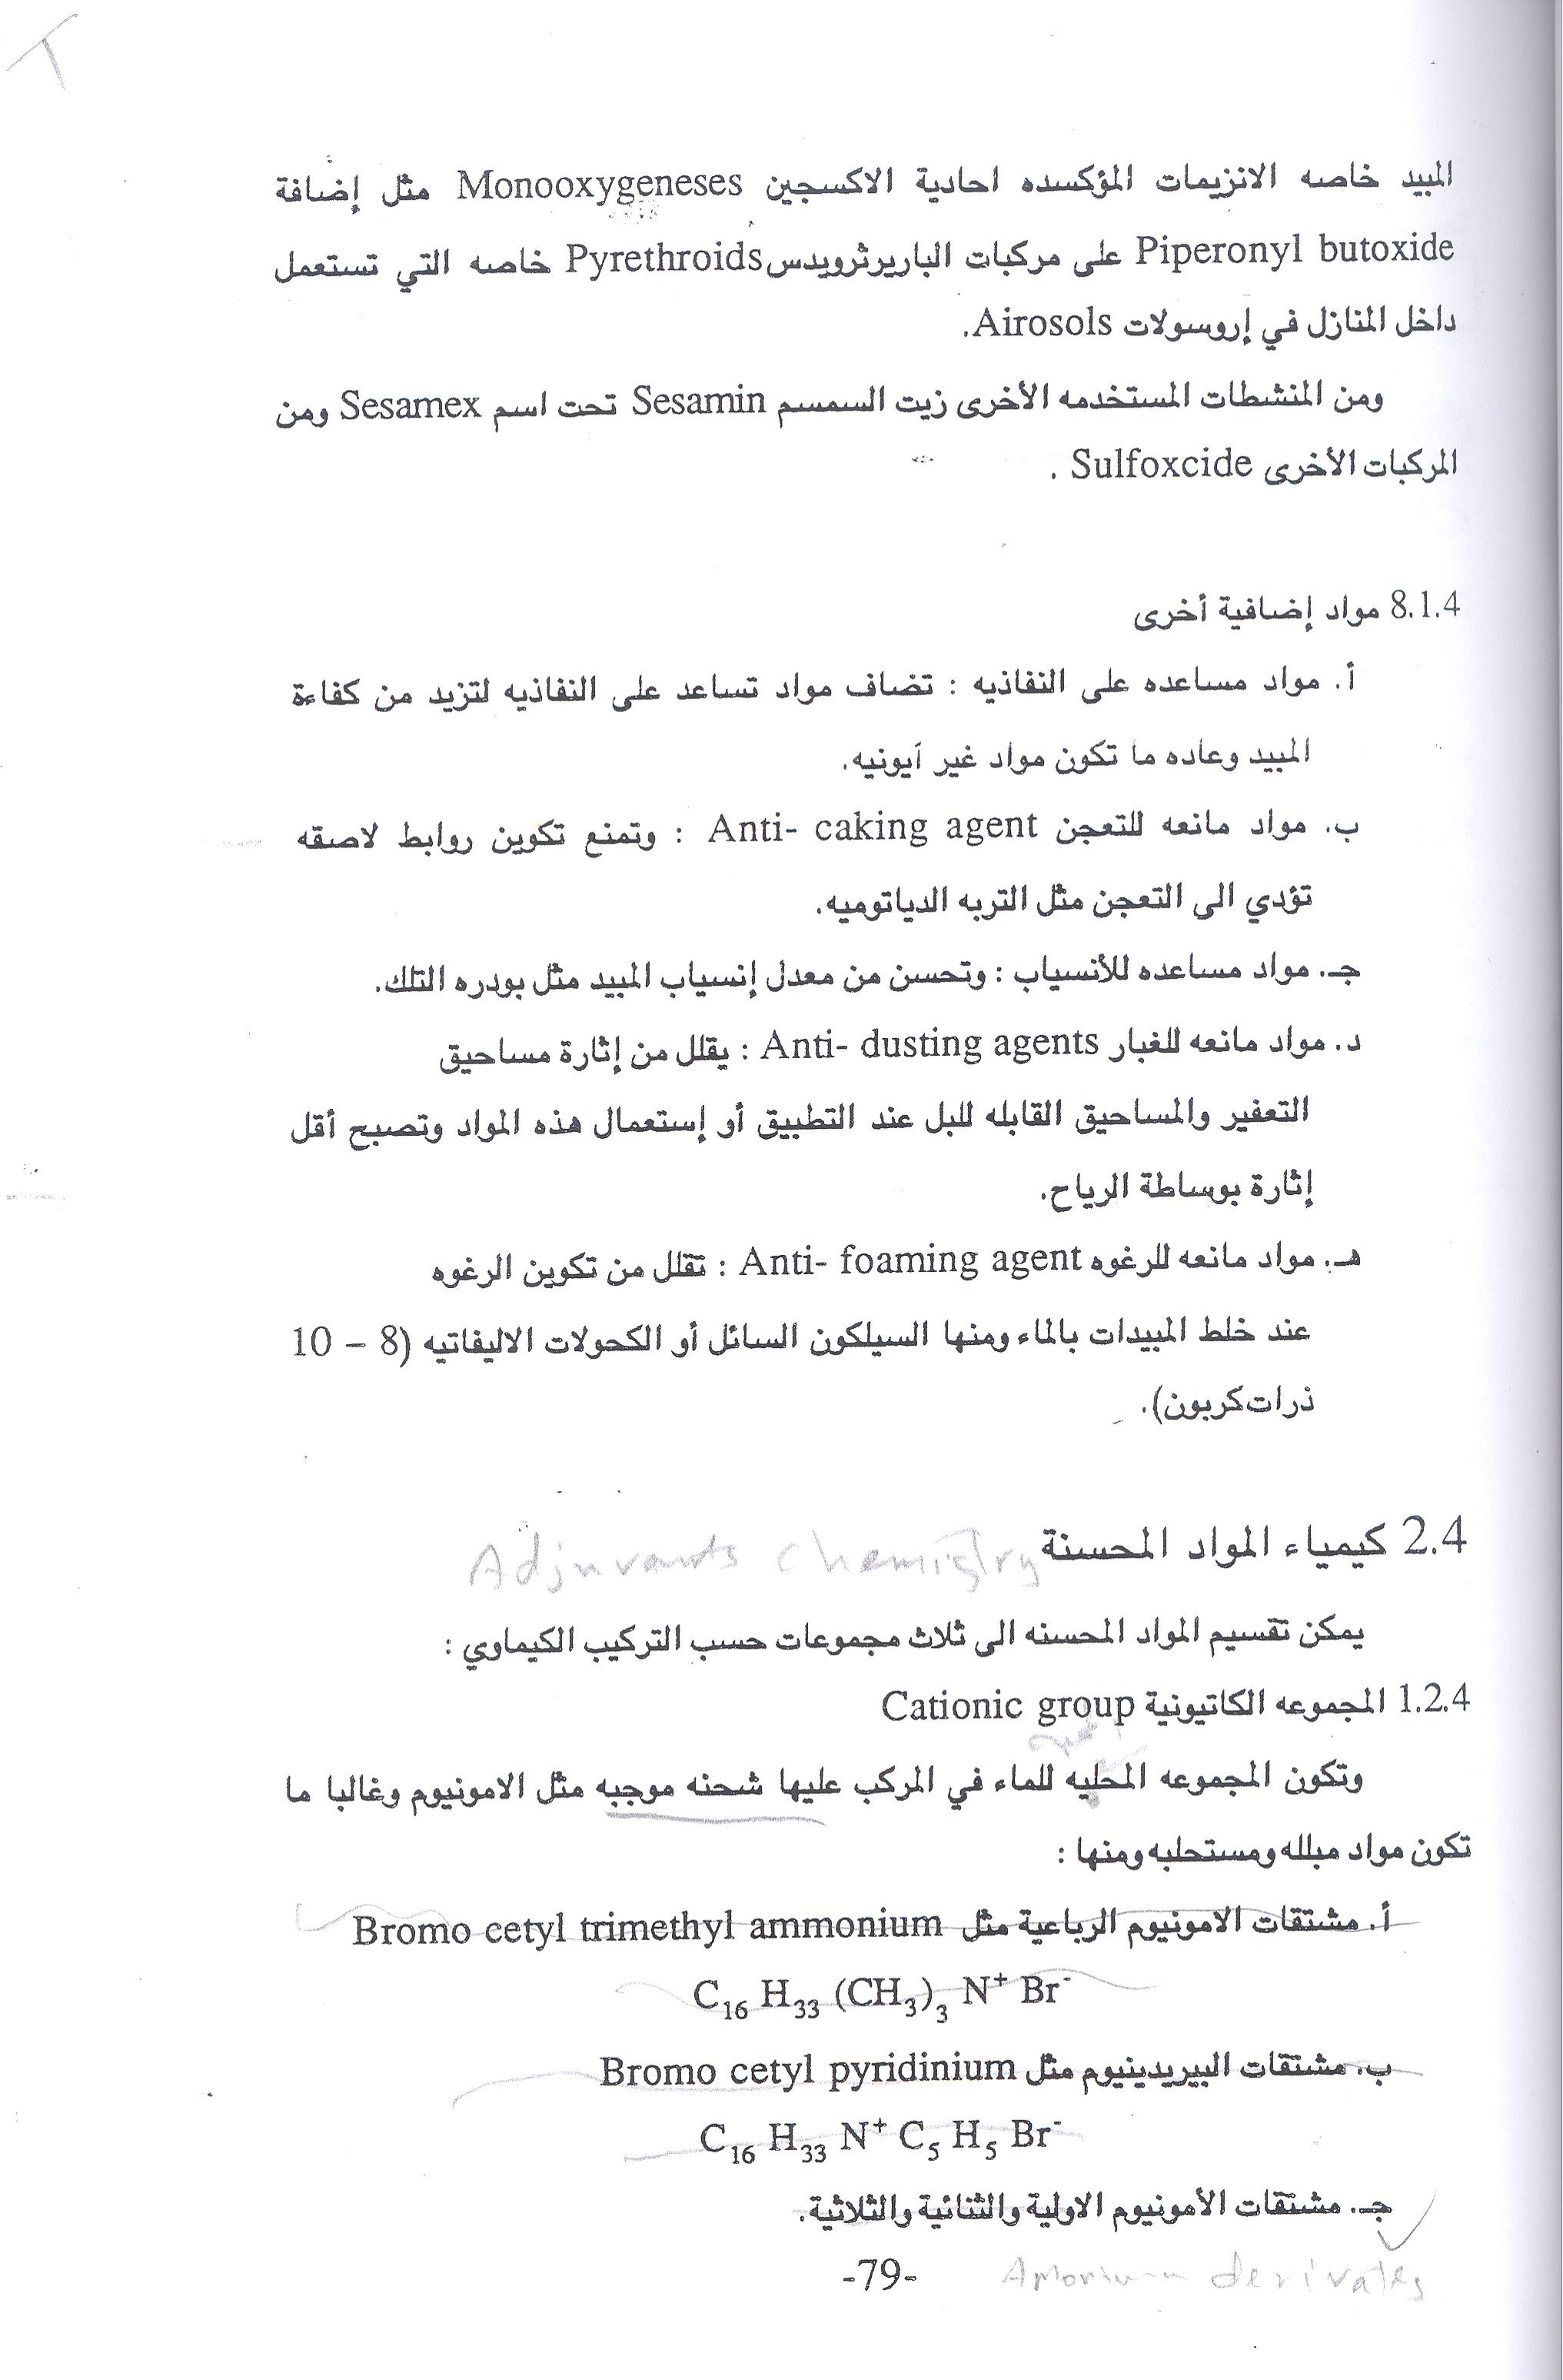 المبيد خاصه الانزيمات المؤكسده احادية الاكسجين Monooxygeneses مثل إضافة
Piperonyl butoxide على مركبات الباريرثرويدس Pyrethroids خاصه التي تستعمل
داخل المنازل في إروسولات Airosols.
ومن المنشطات المستخدمه الأخرى زيت السمسم Sesamin تحت اسم Sesamex ومن
المركبات الأخرى Sulfoxcide .
8.1.4 مواد إضافية أخرى
أ. مواد مساعده على النفاذيه : تضاف مواد تساعد على النفاذيه لتزيد من كفاءة
المبيد وعاده ما تكون مواد غير آيونيه.
ب. مواد مانعه للتعجن Anti- caking agent : وتمنع تكوين روابط لاصقه
تؤدي الى التعجن مثل التربه الدياتوميه.
جـ. مواد مساعده للأنسياب : وتحسن من معدل إنسياب المبيد مثل بودره التلك.
د. مواد مانعه للغبار Anti- dusting agents : يقلل من إثارة مساحيق
التعفير والمساحيق القابله للبل عند التطبيق أو إستعمال هذه المواد وتصبح أقل
إثارة بوساطة الرياح.
هـ. مواد مانعه للرغوه Anti- foaming agent : تقلل من تكوين الرغوه
عند خلط المبيدات بالماء ومنها السيلكون السائل أو الكحولات الاليفاتيه (8 – 10
ذرات كربون).
2.4 كيمياء المواد المحسنة Adjuvants chemistry
يمكن تقسيم المواد المحسنه الى ثلاث مجموعات حسب التركيب الكيماوي :
1.2.4 المجموعه الكاتيونية Cationic group
وتكون المجموعه المحليه للماء في المركب عليها شحنه موجبه مثل الامونيوم وغالبا ما
تكون مواد مبلله ومستحلبه ومنها :
أ. مشتقات الامونيوم الرباعية مثل Bromo cetyl trimethyl ammonium
C₁₆ H₃₃ (CH₃)₃ N⁺ Br⁻
ب. مشتقات البيريدينيوم مثل Bromo cetyl pyridinium
C₁₆ H₃₃ N⁺ C₅ H₅ Br⁻
جـ. مشتقات الأمونيوم الاولية والثنائية والثلاثية.
-79-
derivates